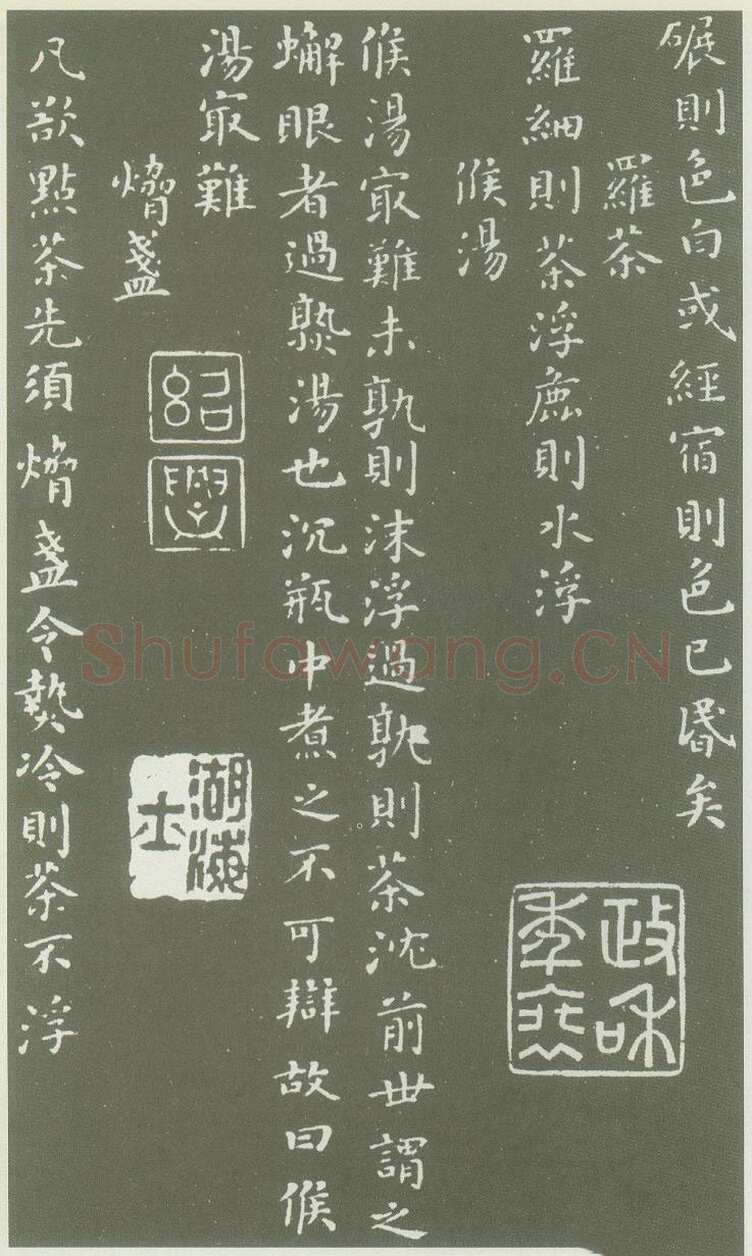 碾則色白或經宿則色已昬矣
羅茶
羅細則茶浮麁則水浮
候湯
候湯㝡難未孰則沫浮過孰則茶沈前世謂之
蠏眼者過熟湯也沉瓶中煮之不可辯故曰候
湯㝡難
熁盞
凡欲點茶先須熁盞令熱冷則茶不浮
政和
紹興
湖海
士
Shufawang.CN